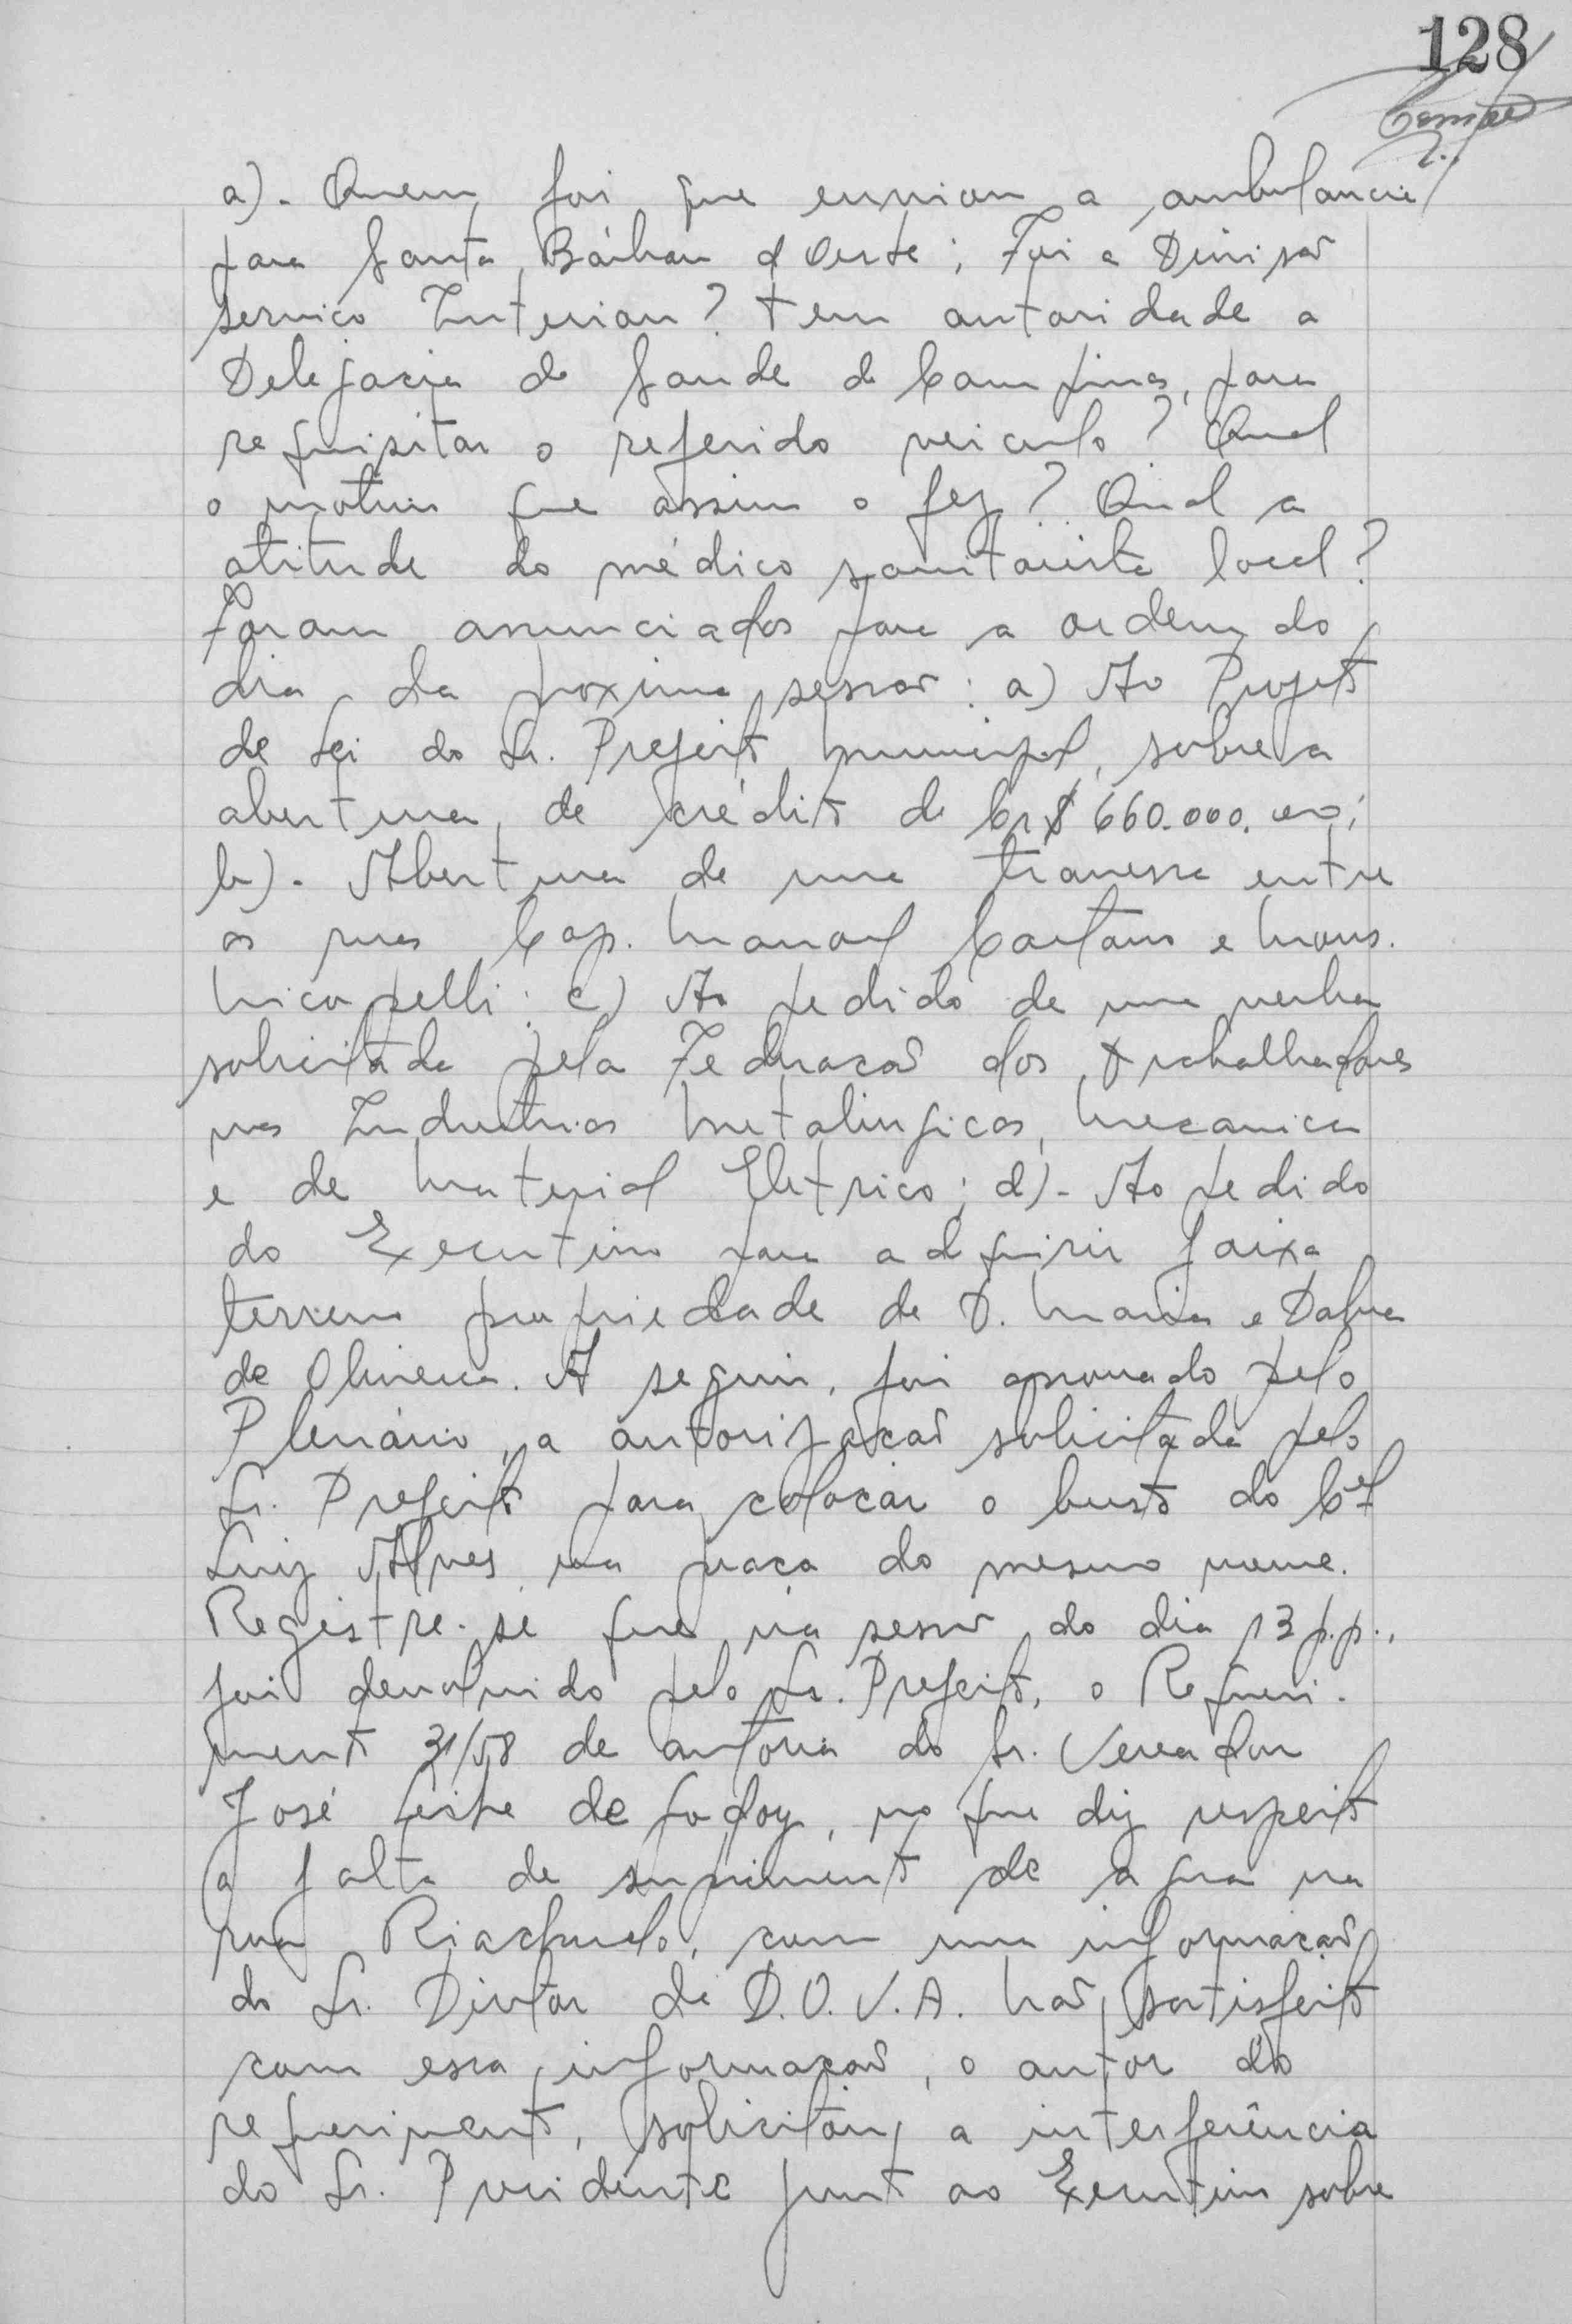 128
a). Quem foi que enviou a ambulancia
para Santa Bárbara d'Oeste; Foi a Divisão
serviço Interior? tem autoridade a
Delegacia de Saude de Campinas, para
requisitar o referido veiculo? Qual
o motivo que assim o fez? Qual a
atitude do médico sanitarista local?
Foram anunciados para a ordem do
dia da proxima sessão: a) Ao Projeto
de Lei do Sr. Prefeito municipal, sobre a
abertura, de crédito de Cr$ 660.000.00;
b). Abertura de uma travessa entre
as ruas Cap. Manoel Caetano e Mons.
Nicopelli: c) Ao pedido de uma verba
solicitada pela Federacão dos trabalhadores
nas Industrias Metalurgicas, Mecanica
e de Material Eletrico; d)- Ao pedido
do Executivo para adquirir faixa
terreno propriedade de D. Maria e Dalva
de Oliveira. A seguir, foi aprovado pelo
Plenário, a autorização solicitada pelo
Sr. Prefeito para colocar o busto do Cel
Luiz Alves na praça do mesmo nome.
Registre-se que na sessão do dia 13 p.p.,
foi devolvido pelo Sr. Prefeito, o Requeri-
mento 31/58 de autoria do Sr. Vereador
José Leite de Godoy, no que diz respeito
a falta de suprimento de agua na
rua Riachuelo, com uma informacão
do Sr. Diretor da D.O.V.A. Não satisfeito
com essa informacão, o autor do
requerimento, solicitou a interferência
do Sr. Presidente junto ao Executivo sobre